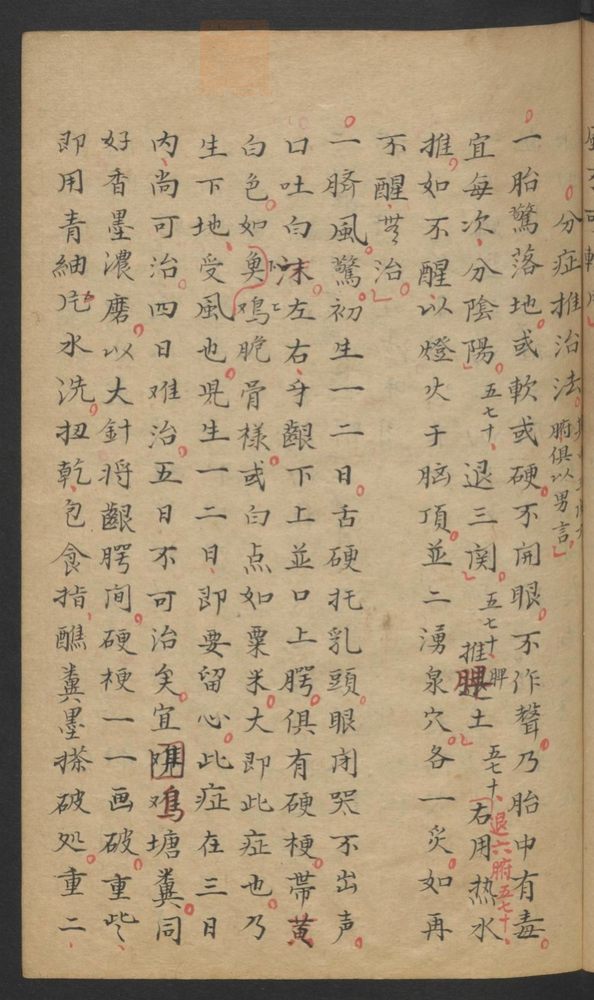 分症推治法
腑俱以男言
一胎驚落地或軟或硬不開眼不作聲乃胎中有毒
宜每次分陰陽五七十退三関五七十推脾土五七十右用热水
退六腑五七十
推如不醒以燈火于脑頂並二湧泉穴各一炙如再
不醒無治
一臍風驚初生一二日舌硬托乳頭眼閉哭不出声
口吐白沫左右牙齦下上並口上腭俱有硬梗帶黄
白色如臭鸡脆骨樣或白点如粟米大即此症也乃
生下地受風也児生一二日即要留心此症在三日
内尚可治四日难治五日不可治矣宜 鸡塘糞同
好香墨濃磨以大針將齦腭間硬梗一一画破重些
即用青紬片水洗扭乾包食指醮糞墨搽破処重二